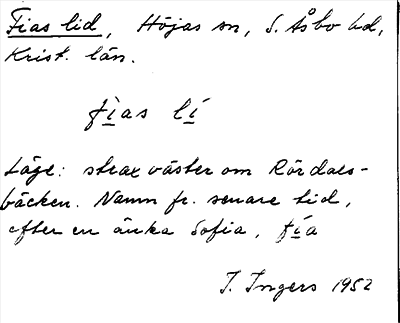 Fias lid, Höjas sn, S. Åsbo hd,
Krist. län.
fìas lí
Läge: strax väster om Rördals-
bäcken. Namn fr. senare tid,
efter en änka Sofia, fía
I. Ingers 1952